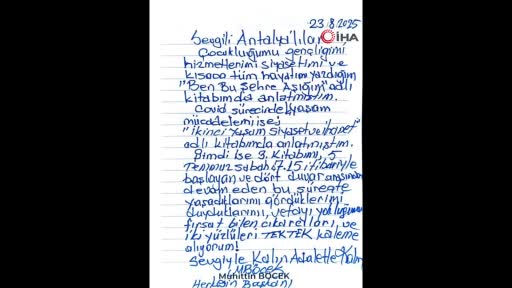 23.8.2025
İHA
Sevgili Antalyalılar
Çocukluğumu gençliğimi
hizmetlerimi siyasetimi ve
kısaca tüm hayatımı yazdığım
"Ben Bu Şehre Aşığım" adlı
kitabımda anlatmıştım.
Covid sürecindeki yaşam
mücadelemi ise;
"İkinci Yaşam Siyaset ve İhanet"
adlı kitabımda anlatmıştım.
Şimdi ise 3. Kitabımı, 5
Temmuz sabah 07.15 itibariyle
başlayan ve dört duvar arasından
devam eden bu süreçte
yaşadıklarımı gördüklerimi
duyduklarımı, yokluğumu
fırsat bilen çıkarcıları, ve
iki yüzlüleri TEKTEK kaleme
alıyorum!
Sevgiyle Kalın Adaletle Kalın
M.BÖCEK
Muhittin BÖCEK
Başkanı